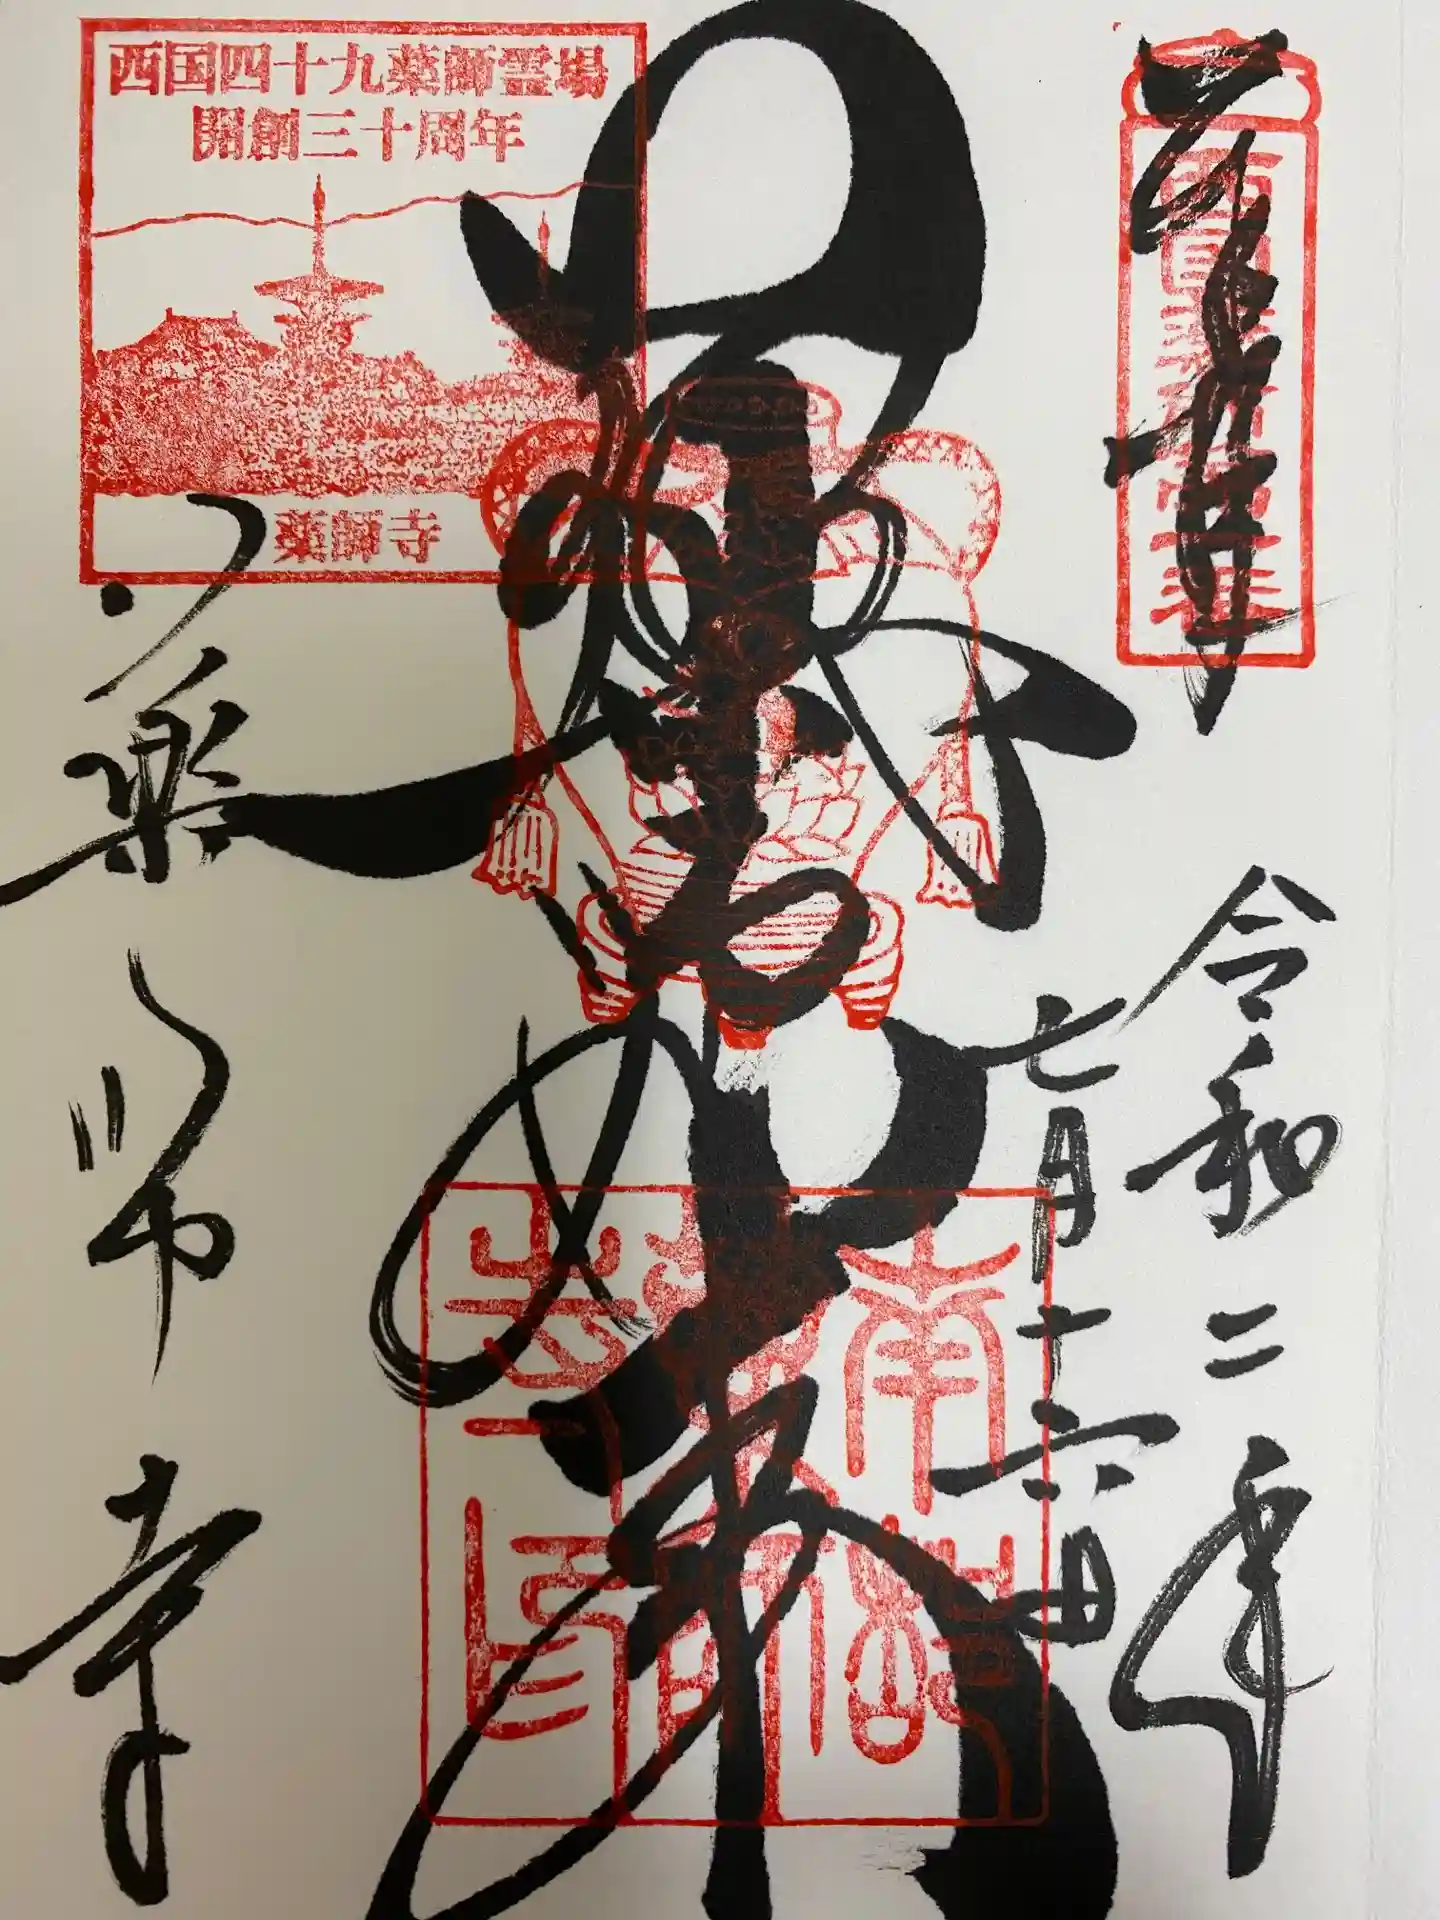 奉拝
令和二年
七月十六日
薬師如来
薬師寺
西国四十九薬師霊場
開創三十周年
薬師寺